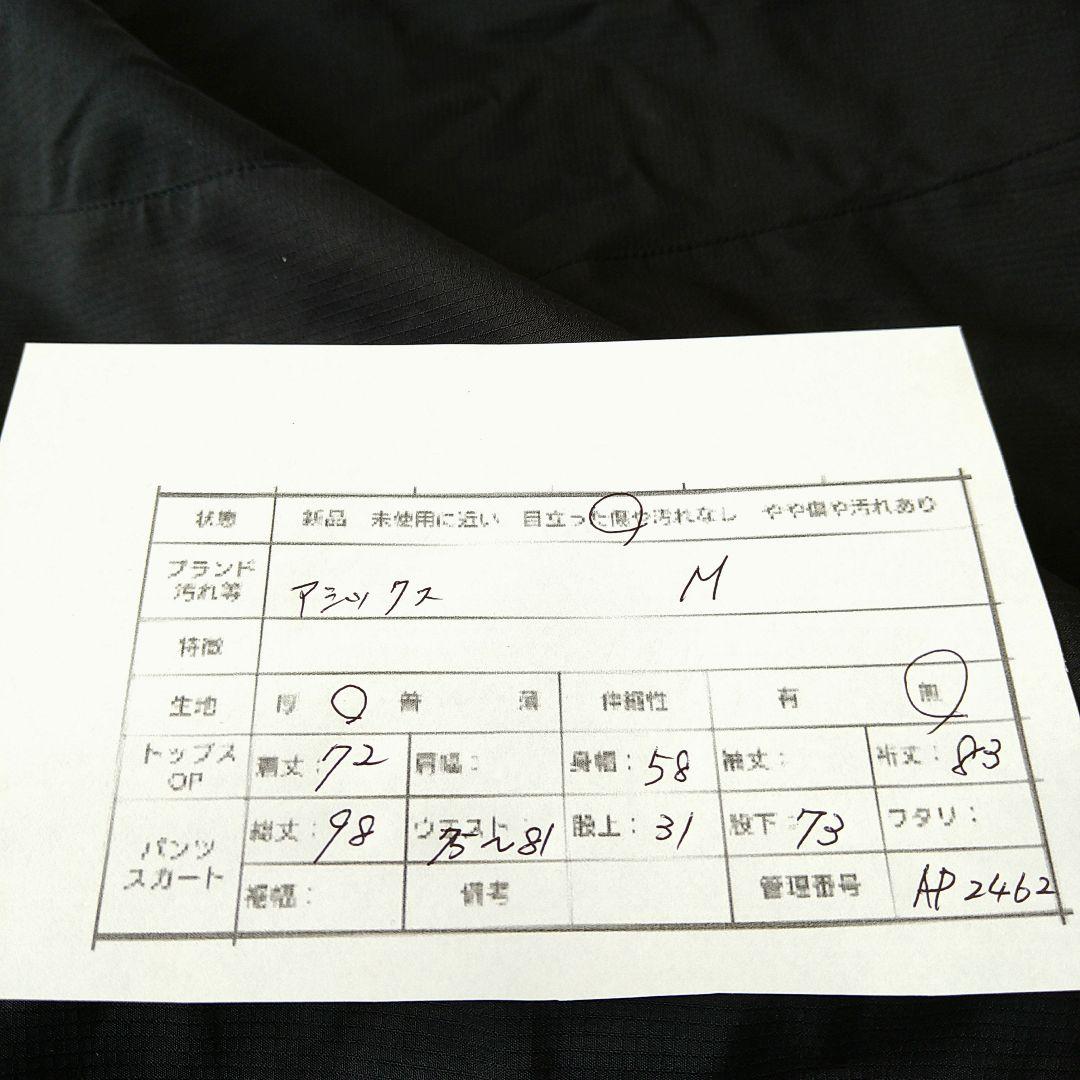 状態 新品 未使用に近い 目立った傷や汚れなし やや傷や汚れあり
ブランド
汚れ等 アシックス M
特徴
生地 厚 普 薄 伸縮性 有 無
トップス
OP 着丈：72 肩幅： 身幅：58 袖丈： 裄丈：83
パンツ
スカート 総丈：98 ウエスト：75〜81 股上：31 股下：73 ワタリ：
裾幅： 備考 管理番号 AP2462